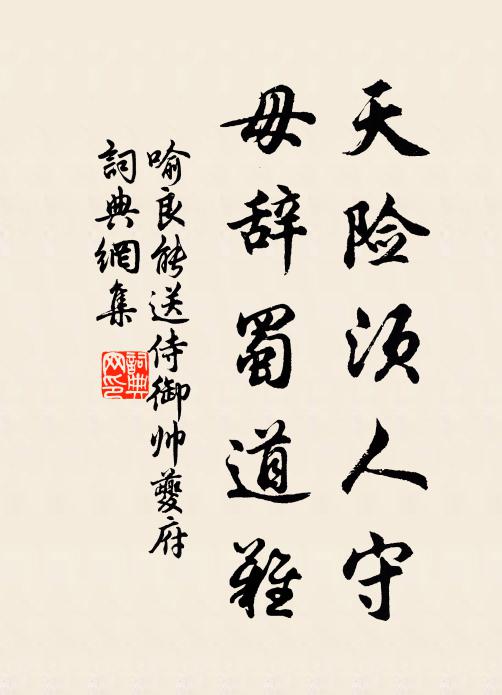 天险须人守
毋辞蜀道難
喻良能送侍御帅夔府
詞典網集
詞典网印